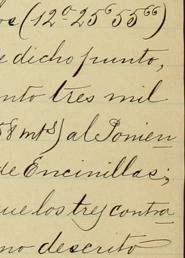 os (12º 25⁶ 55⁶⁶)
e dicho punto,
nto tres mil
58 mts) al Ponien
de Encinillas;
ue los tres contra
no descrito